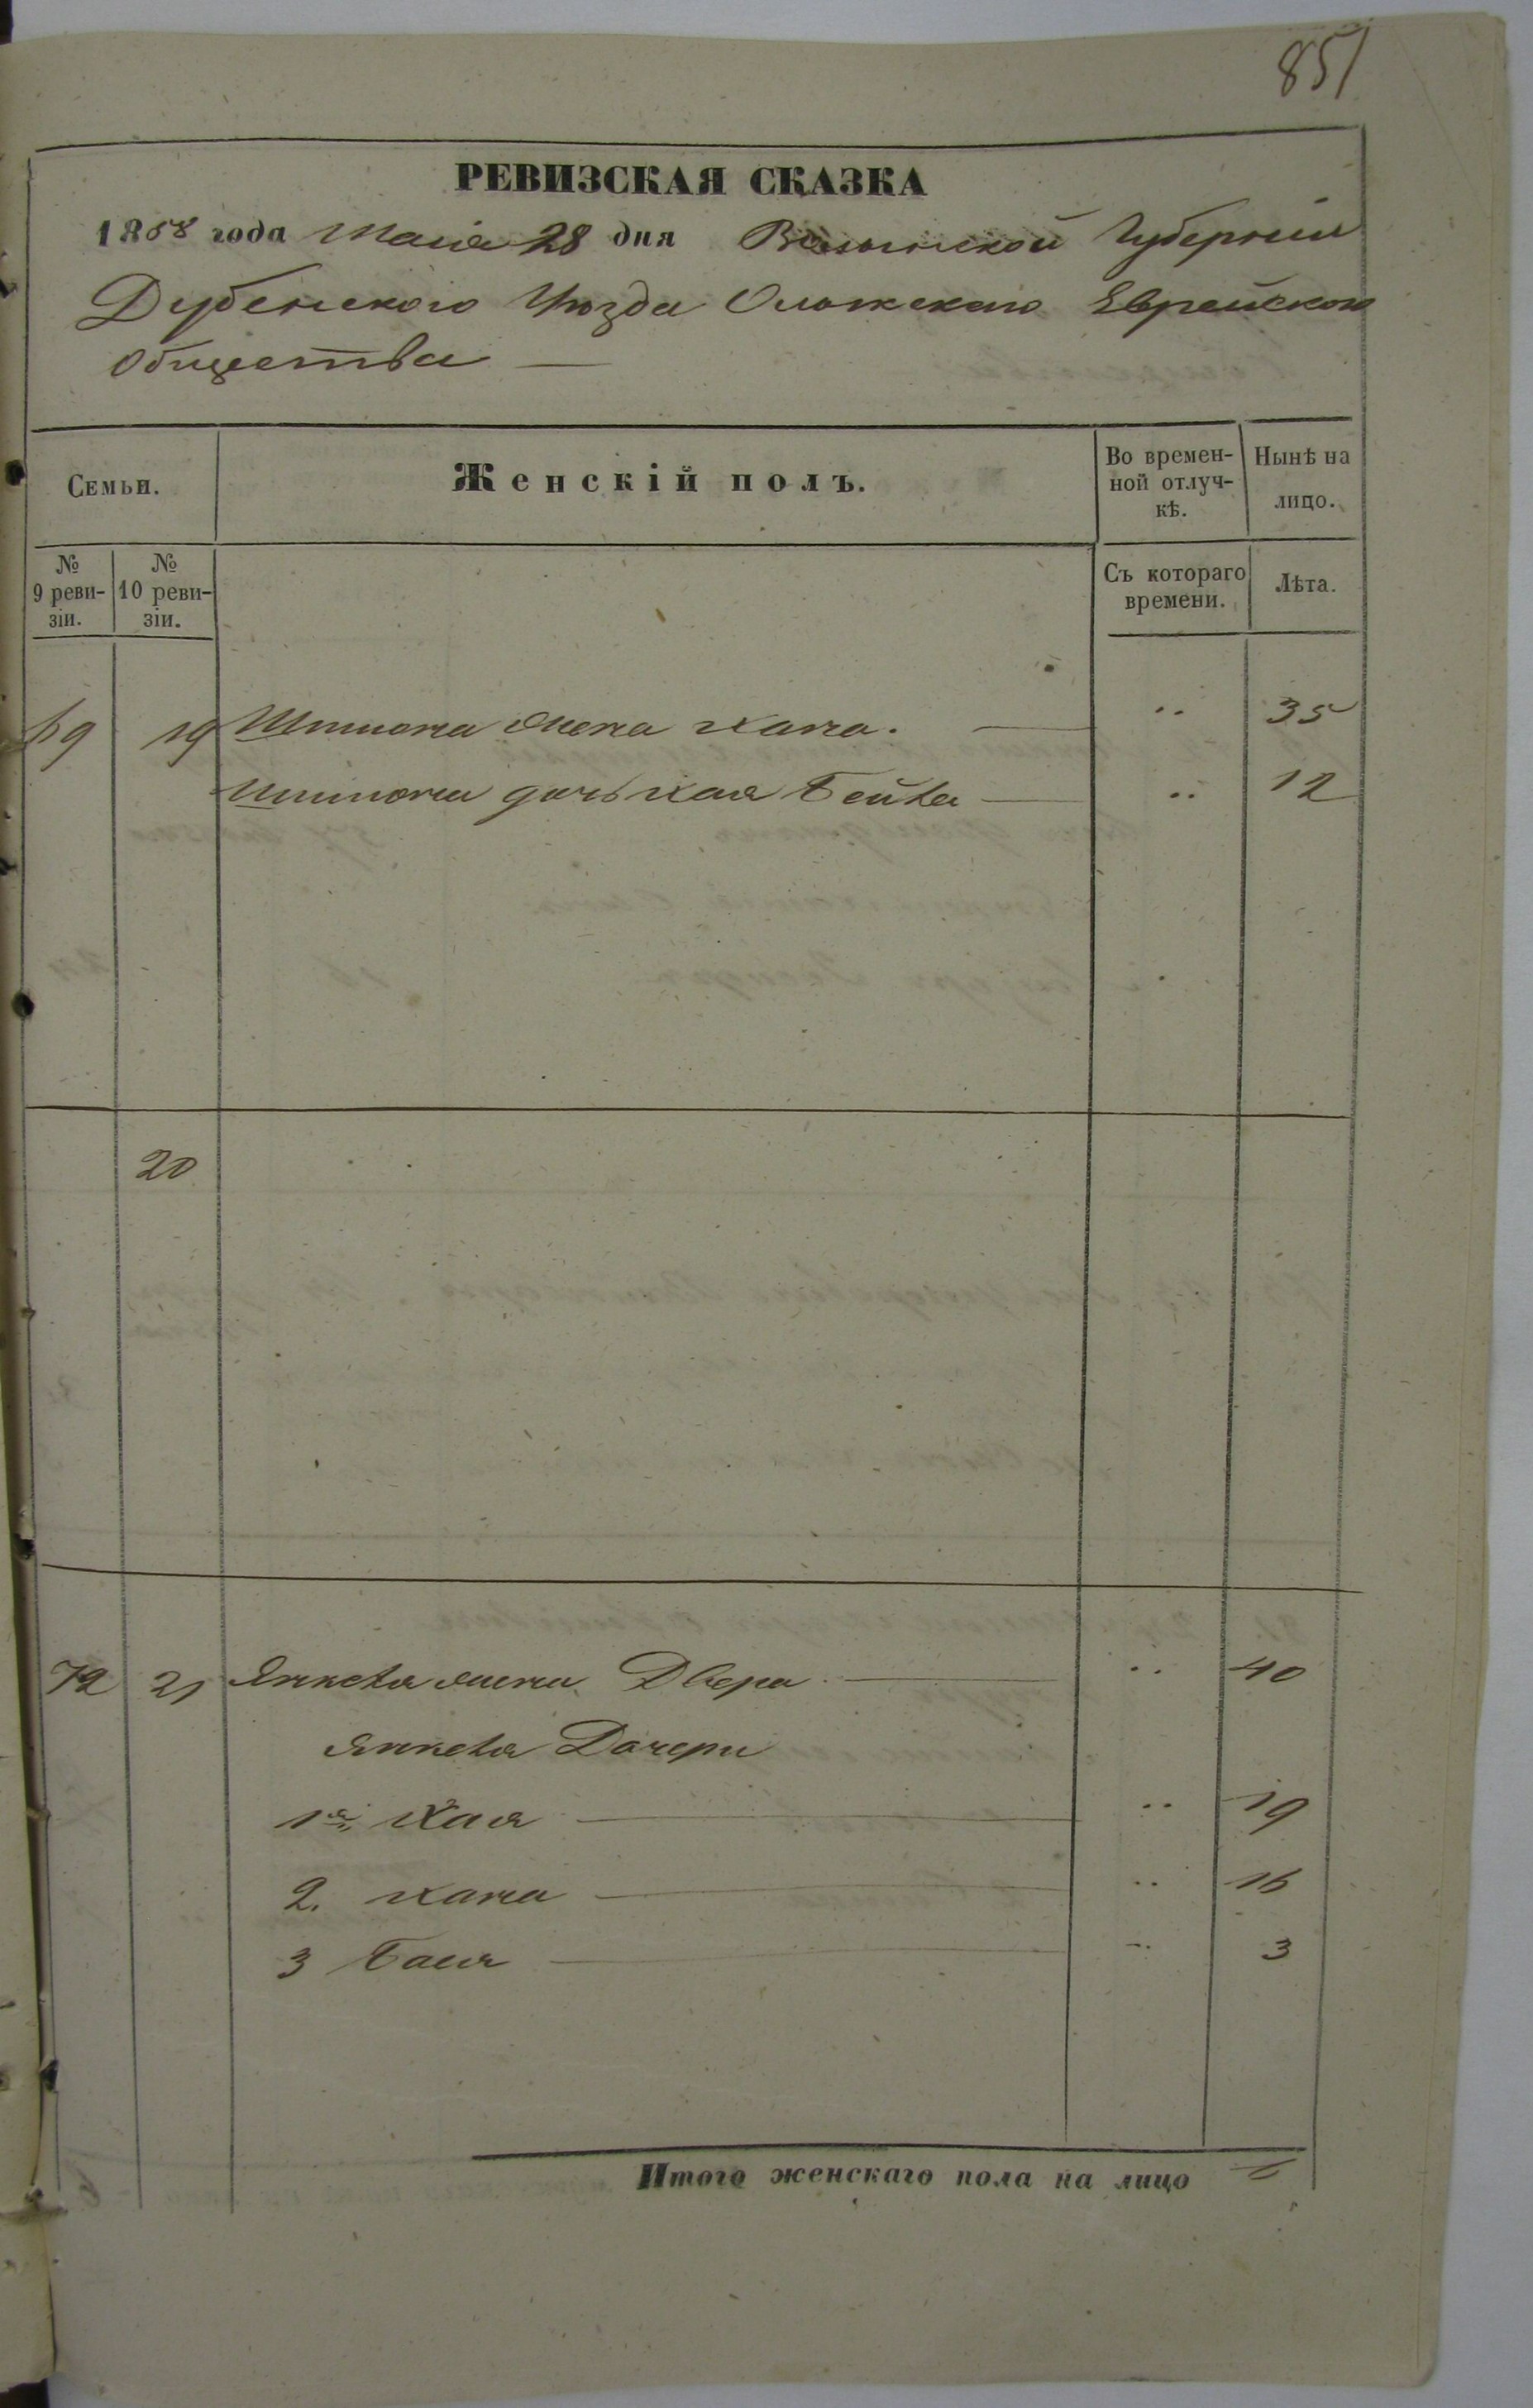 851
РЕВИЗСКАЯ СКАЗКА
1858 года Маия 28 дня Волынской Губернии
Дубенского Уѣзда Олыкского Еврейского
Общества —
Семьи.
Женскій полъ.
Во времен-
ной отлуч-
кѣ.
Нынѣ на
лицо.
№
9 реви-
зіи.
№
10 реви-
зіи.
Съ котораго
времени.
Лѣта.
69 19 Шимона жена Хана. — " 35
Шимона дочь Хая Бейла — " 12
20
72 21 Янкеля жена Двера — " 40
Янкеля Дочери
1я Хая — " 19
2. Хана — " 16
3 Бася — " 3
Итого женскаго пола на лицо 6